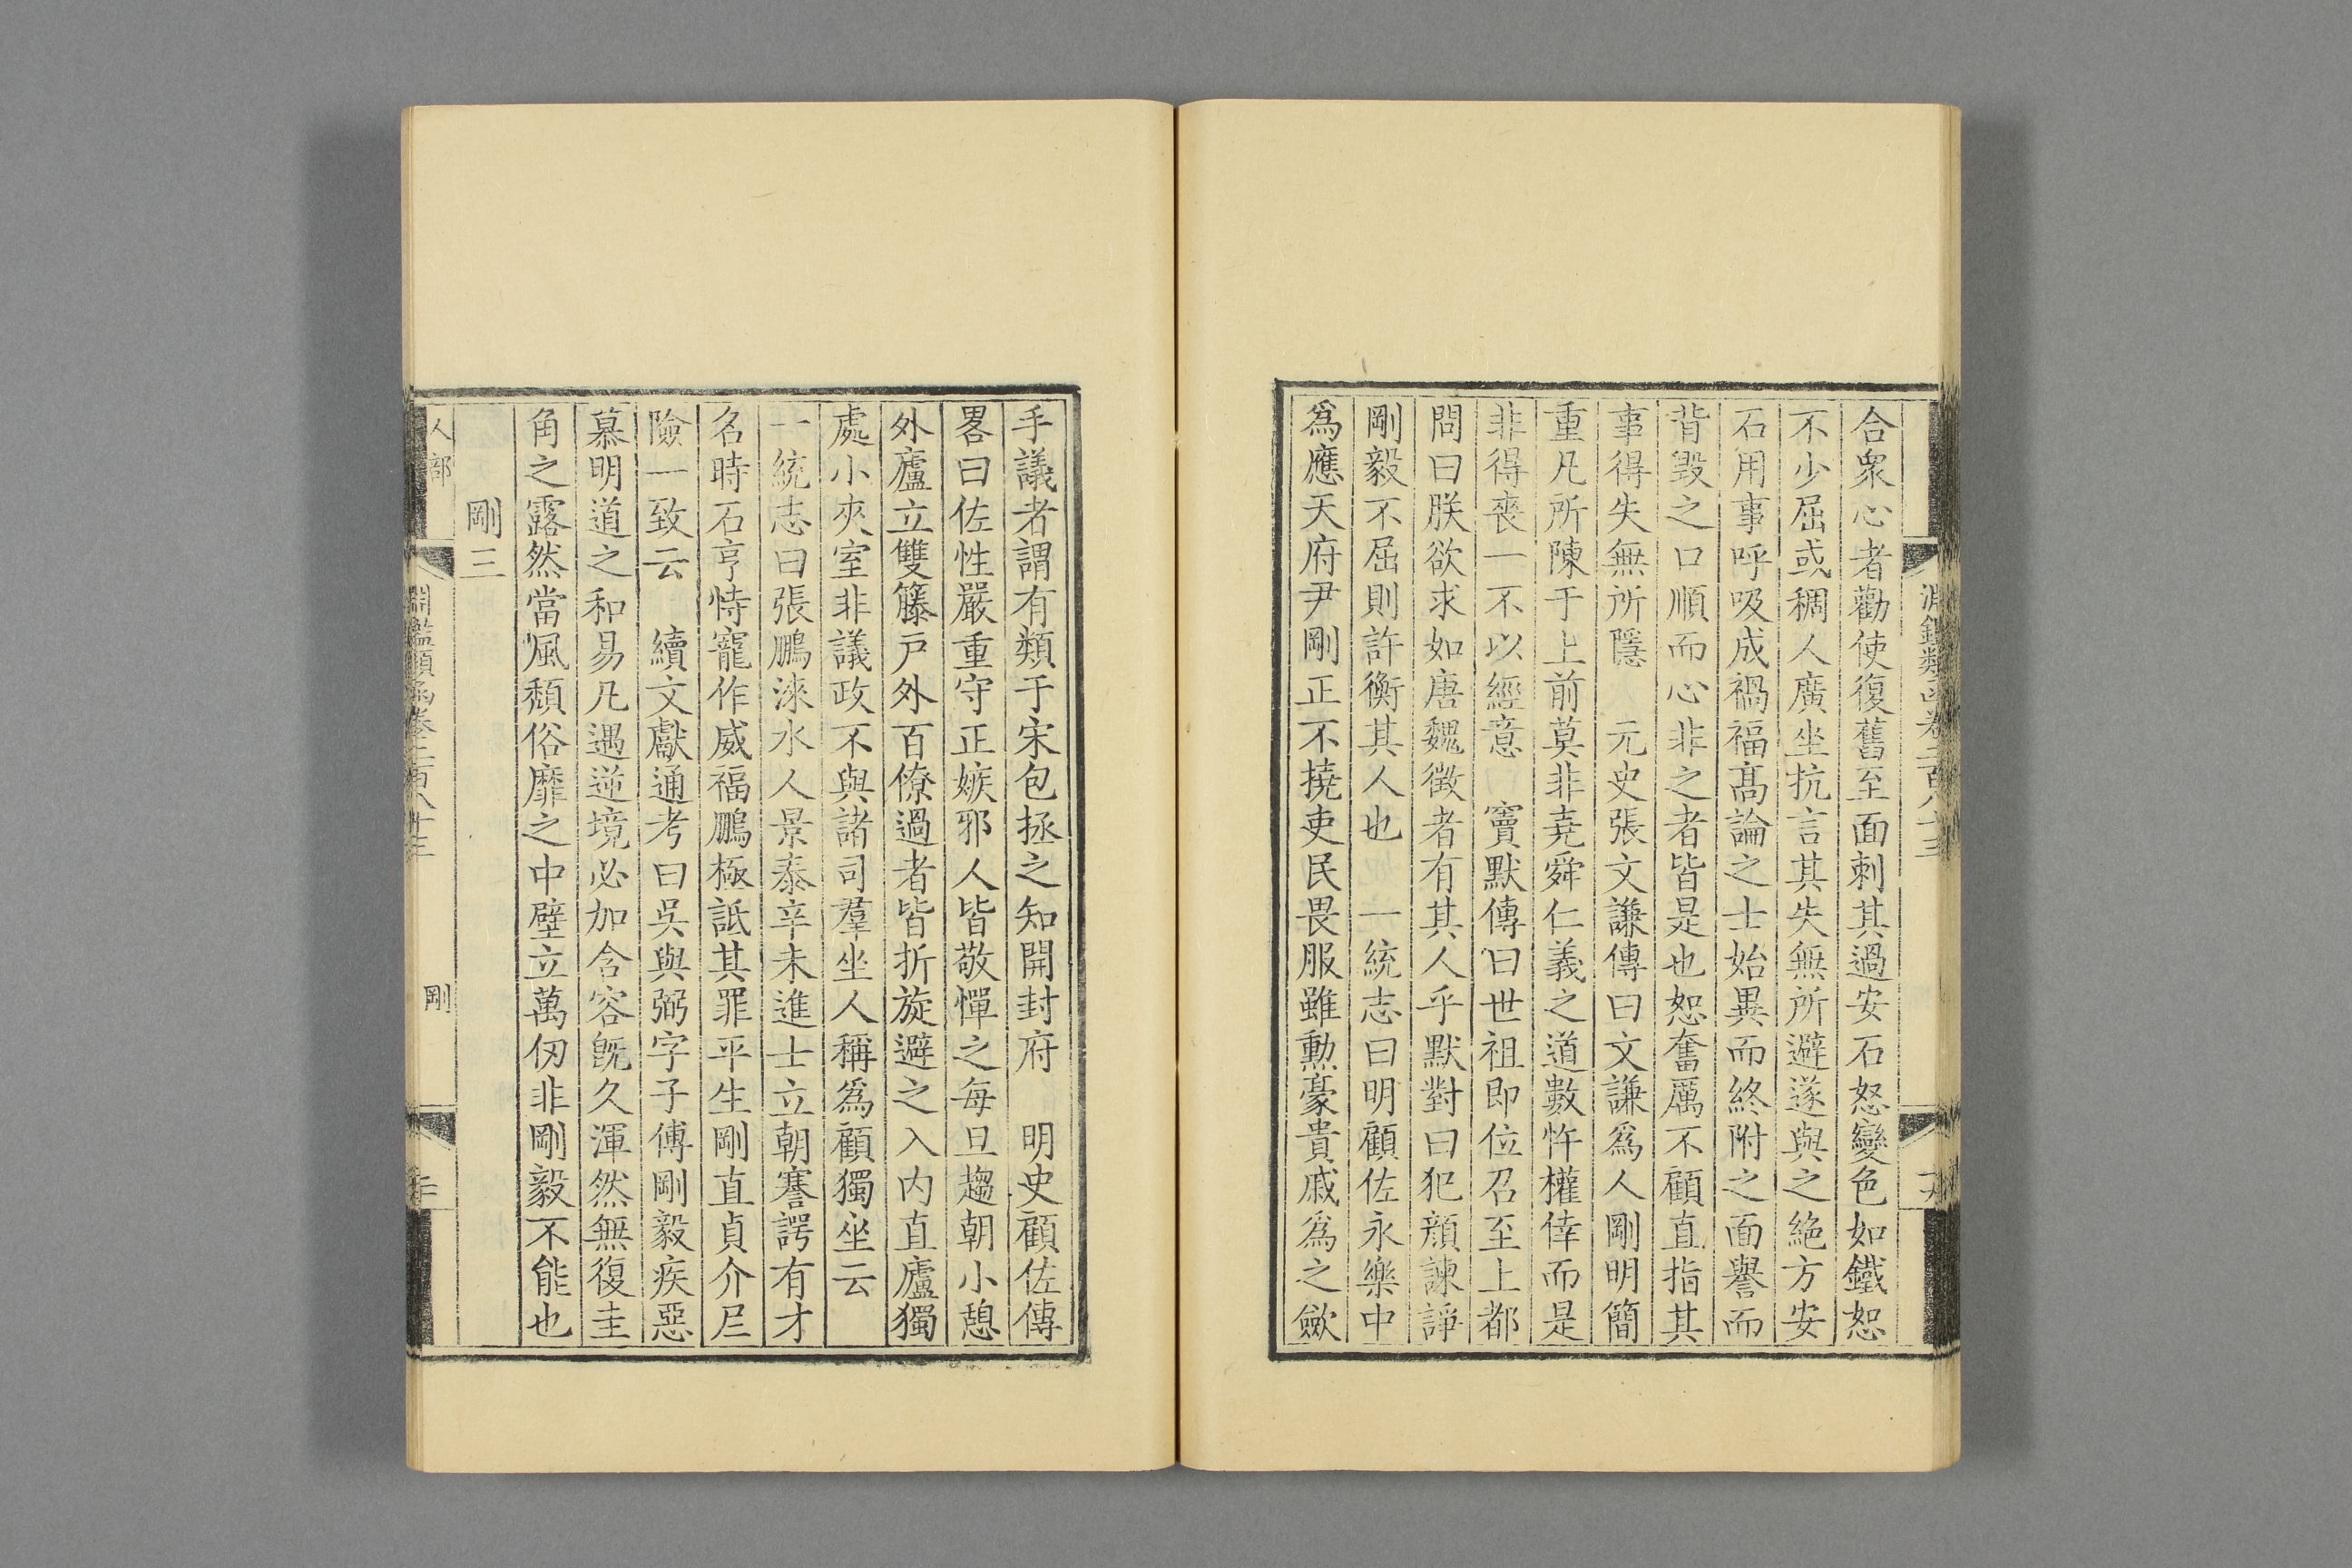 合衆心者勸使復舊至面刺其過安石怒變色如鐵恕
不少屈或稠人廣坐抗言其失無所避遂與之絶方安
石用事呼吸成禍福髙論之士始異而終附之面譽而
背毀之口順而心非之者皆是也恕奮厲不顧直指其
事得失無所隱　元史張文謙傳曰文謙爲人剛明簡
重凡所陳于上前莫非堯舜仁義之道數忤權倖而是
非得喪一不以經意　竇默傳曰世祖即位召至上都
問曰朕欲求如唐魏徴者有其人乎默對曰犯顔諫諍
剛毅不屈則許衡其人也　一統志曰明顧佐永樂中
爲應天府尹剛正不撓吏民畏服雖勲豪貴戚爲之歛
手議者謂有類于宋包拯之知開封府　明史顧佐傳
畧曰佐性嚴重守正嫉邪人皆敬憚之每旦趨朝小憩
外廬立雙籐戸外百僚過者皆折旋避之入内直廬獨
處小夾室非議政不與諸司羣坐人稱爲顧獨坐云
一統志曰張鵬淶水人景泰辛未進士立朝謇諤有才
名時石亨恃寵作威福鵬極詆其罪平生剛直貞介𡰥
險一致云　續文獻通考曰吳與弼字子傅剛毅疾惡
慕明道之和易凡遇逆境必加含容旣久渾然無復圭
角之露然當風頹俗靡之中壁立萬仞非剛毅不能也
剛三
人部
淵鑑類函卷二百八十三
剛